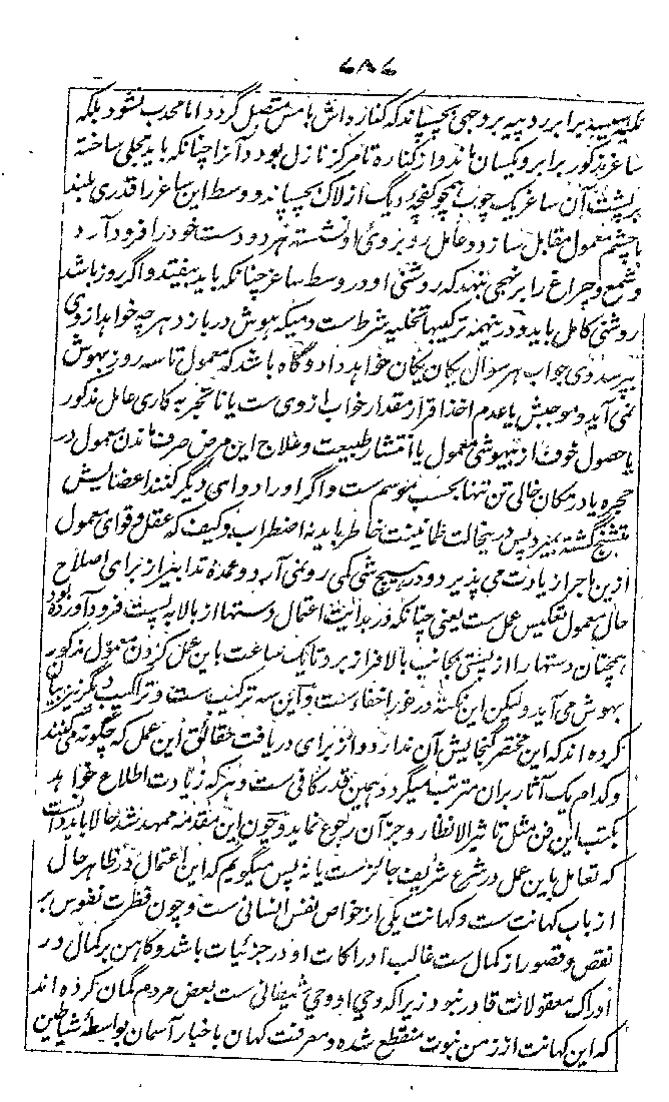 ۷۸۷
تکیه سپید برابر روپیه بروجی بچسپاند که کناره اش بامس متصل گردد اما محدب نشود بلکه
ساغر مذکور برابر و یکسان ماند و از کناره تا مرکز نازل بود و آنرا چنانکه باید تجلی ساخته
بر پشت آن ساغر یک چوب همچو کفچه دیگ از لاک بچسپاند و وسط این ساغر را قدری بلند
با چشم معمول مقابل سازد و عامل روبروی او نشسته هر دو دست خود را فرود آرد
و شمع و چراغ را بر نهجی بنهد که روشنی او در وسط ساغر چنانکه باید بیفتد و اگر روز باشد
روشنی کامل باید و در ینهمه ترکیبها تخلیه شرط ست دمیکه بهوش در باز د هر چه خواهد از وی
بپرسد وی جواب هر سوال یکان یکان خواهد داد و گاه باشد که معمول تا سه روز بهوش
نمی آید و موجبش یا عدم اخذ اقرار مقدار خواب از وی ست یا ناتجربه کاری عامل مذکور
یا حصول خوف از بیهوشی معمول یا انتشار طبیعت و علاج این مرض صرف ماندن معمول در
حجره یا در مکان خالی تن تنها بحسب موسم ست و اگر او را دوای دیگر کنند اعضایش
متشنج گشته بمیرد پس درینحالت طمانینت خاطر باید نه اضطراب و کیف که عقل و قوای معمول
ازین ماجرا زیادت می پذیرد و در هیچ شی کمی رو نمی آرد و عمده تدابیر از برای اصلاح
حال معمول تعکیس عمل ست یعنی چنانکه در بدائیت اعتمال دستها از بالا به پست فرود آورده بود
همچنان دستها را از پستی بجانب بالا فراز برد تا یک ساعت باین عمل کردن معمول مذکور
بهوش می آید ولیکن این نکته در غور اخفاء ست و این سه ترکیب ست و تراکیب دیگر نیز بیان
کرده اند که این مختصر گنجایش آن ندارد و از برای دریافت حقائق این عمل که چگونه می کنند
و کدام یک آثار بران مترتب میگردد همین قدر کافی ست و هر که زیادت اطلاع خواهد
بکتب این فن مثل تاثیر الانظار و جز آن رجوع نماید و چون این مقدمه ممهد شد حالا باید دانست
که تعامل باین عمل در شرع شریف جائز ست یا نه پس میگویم که این اعتمال در ظاهر حال
از باب کهانت ست و کهانت یکی از خواص نفس انسانی ست و چون فطرت نفوس بر
نقص و قصور از کمال ست غالب ادراکات او در جزئیات باشد و کاهن بر کمال در
ادراک معقولات قادر نبود زیرا که وحی او وحی شیطانی ست بعض مردم گمان کرده اند
که این کهانت از زمن نبوت منقطع شده و معرفت کهان باخبار آسمان بواسطهٔ شیاطین